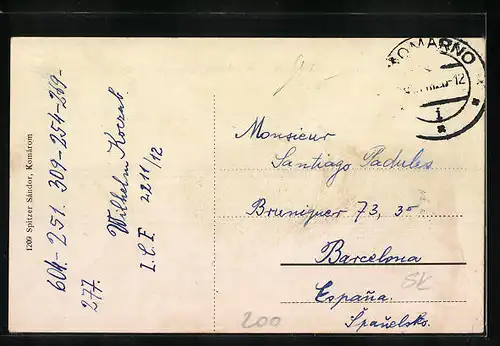 1209 Spitzer Sándor, Komárom
604.- 251. 309-254-269-
277.
Wilhelm
I.C.F. 2211/12
KOMARNO
12
Monsieur
Santiago Padules
Bruniquer 73, 3º
Barcelona
España.
Španělsko.
SK
200